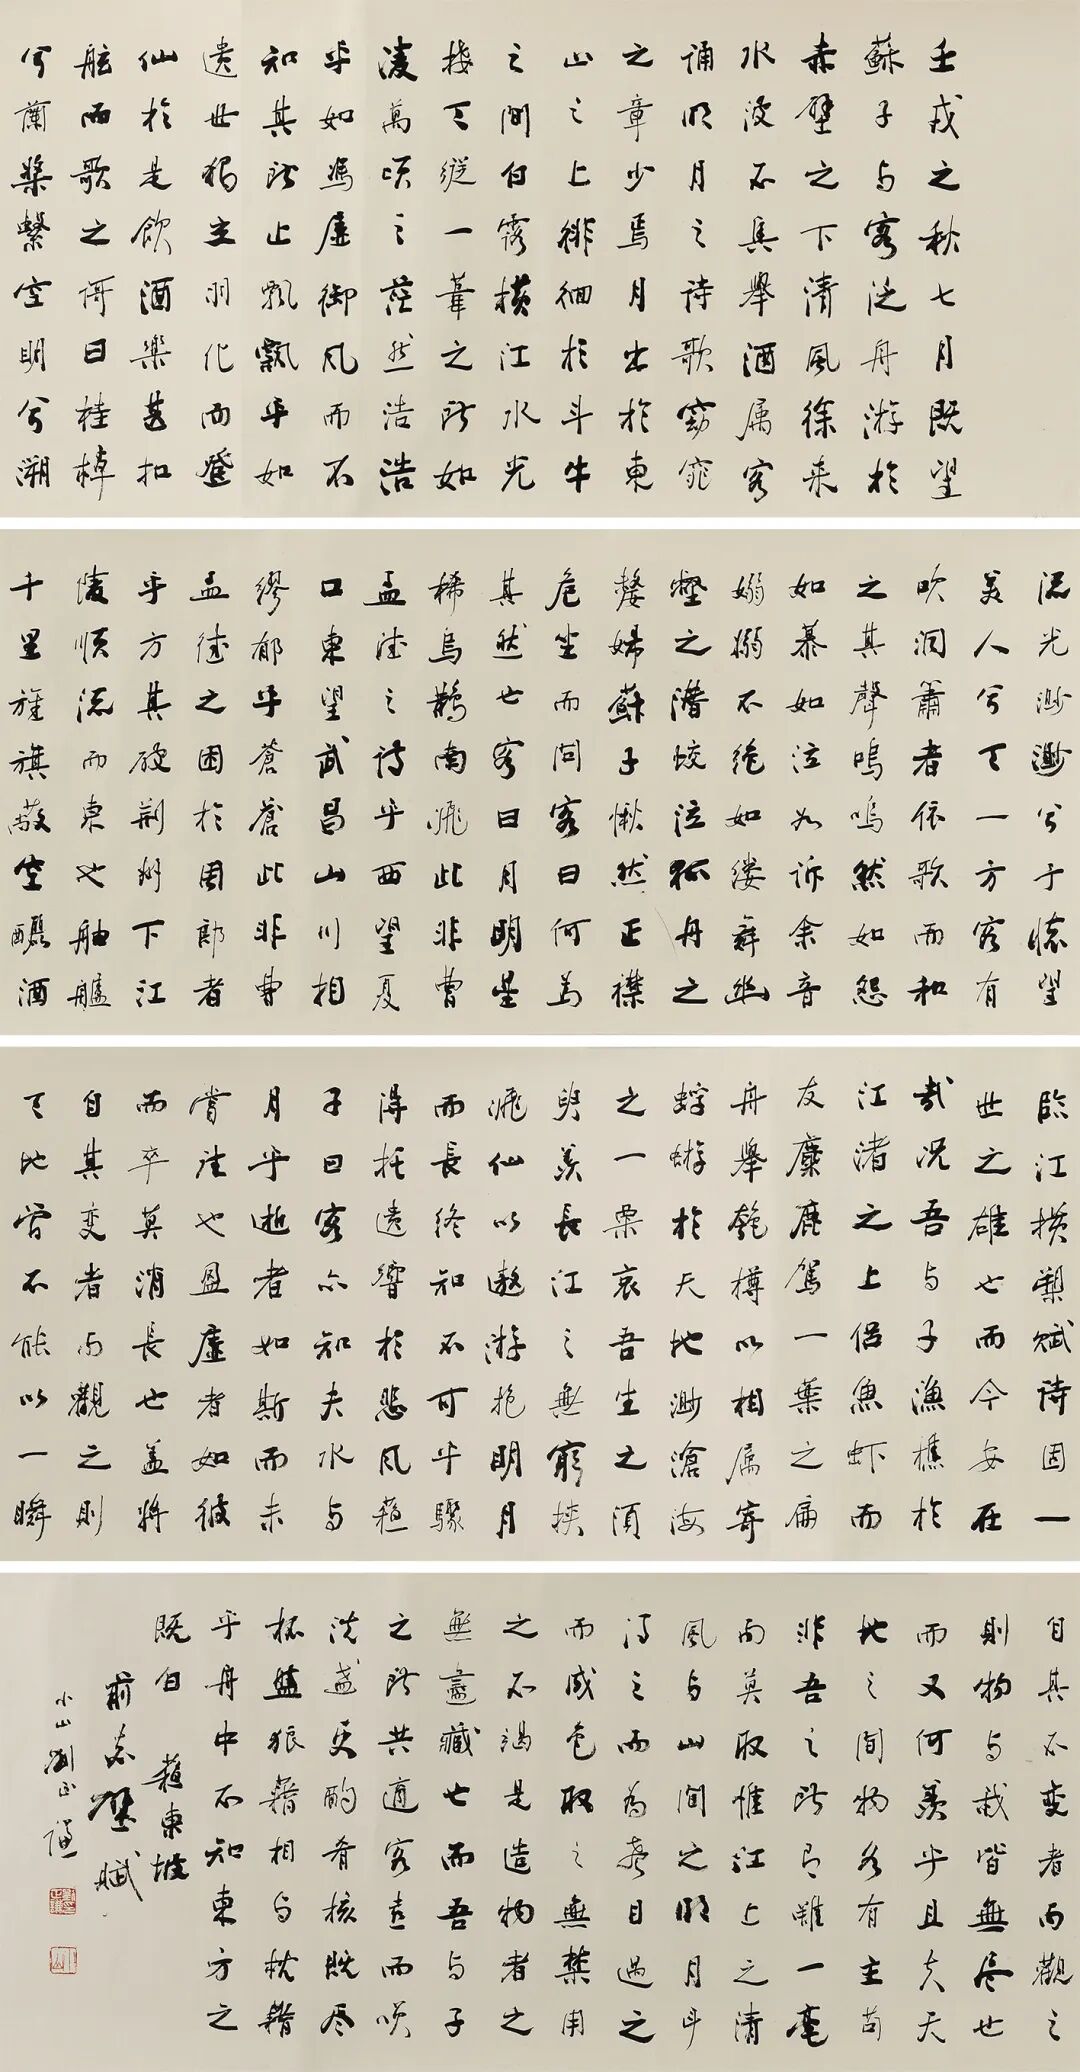 壬戌之秋七月既望
蘇子与客泛舟游於
赤壁之下清風徐来
水波不興舉酒属客
誦明月之诗歌窈窕
之章少焉月出於東
山之上徘徊於斗牛
之間白露横江水光
接天縱一葦之所如
凌萬顷之茫然浩浩
乎如馮虚御風而不
知其所止飄飄乎如
遗世獨立羽化而登
仙於是飲酒樂甚扣
舷而歌之哥曰桂棹
兮蘭槳擊空明兮溯
流光渺渺兮于懐望
美人兮天一方客有
吹洞蕭者依歌而和
之其聲嗚嗚然如怨
如慕如泣如诉余音
嫋嫋不绝如缕舞幽
壑之潛蛟泣孤舟之
嫠婦蘇子愀然正襟
危坐而问客曰何為
其然也客曰月明星
稀烏鵲南飛此非曹
孟德之诗乎西望夏
口東望武昌山川相
缪郁乎蒼蒼此非曹
孟德之困於周郎者
乎方其破荆州下江
陵顺流而東也舳艫
千里旌旗蔽空釃酒
臨江横槊赋诗固一
世之雄也而今安在
哉况吾与子漁樵於
江渚之上侣魚虾而
友麋鹿駕一葉之扁
舟舉匏樽以相属寄
蜉蝣於天地渺滄海
之一粟哀吾生之须
臾羡長江之無窮挾
飛仙以遨游抱明月
而長终知不可乎驟
得托遗響於悲風蘇
子曰客亦知夫水与
月乎逝者如斯而未
嘗往也盈虚者如彼
而卒莫消長也盖将
自其变者而觀之则
天地曾不能以一瞬
自其不变者而觀之
則物与我皆無尽也
而又何羡乎且夫天
地之间物各有主苟
非吾之所有雖一毫
而莫取惟江上之清
風与山间之明月耳
得之而為聲目遇之
而成色取之無禁用
之不竭是造物者之
無盡藏也而吾与子
之所共適客喜而笑
洗盏更酌肴核既尽
杯盤狼藉相与枕藉
乎舟中不知東方之
既白 蘇東坡
前赤壁赋
小山劉正谦